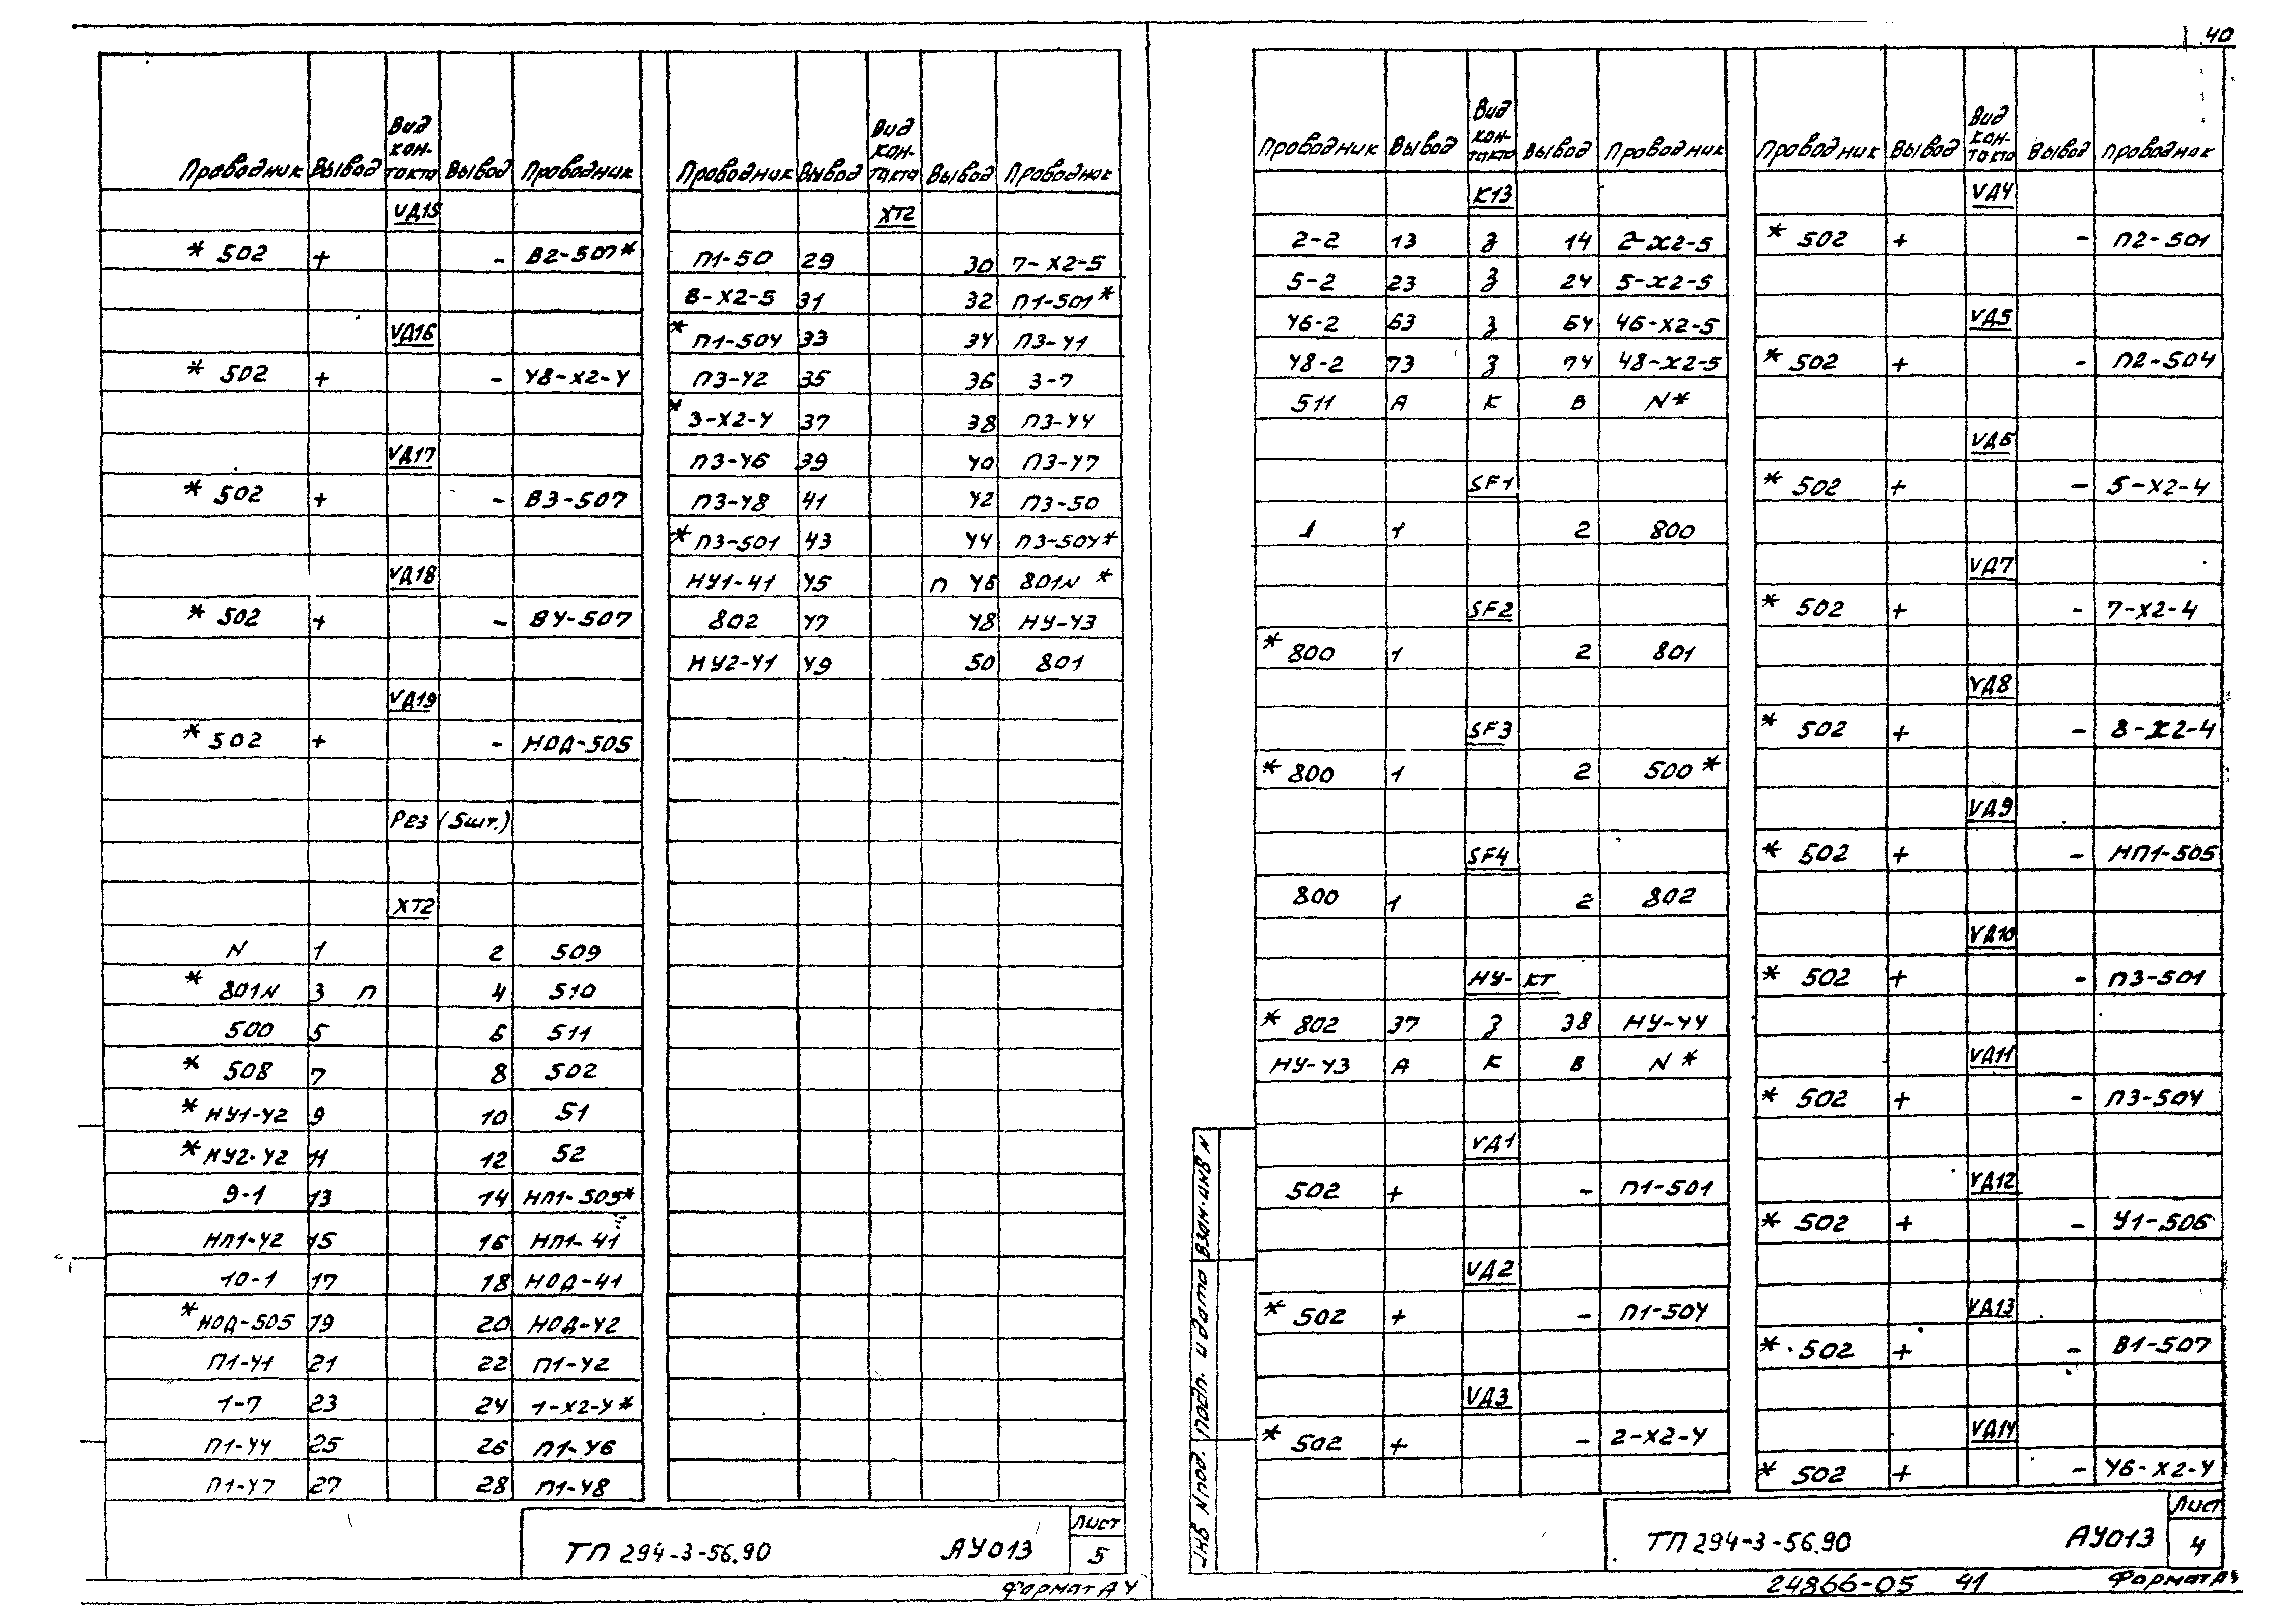 40
Проводник Вывод Вид контакта Вывод Проводник
VД15
* 502 + - В2-507*
VД16
* 502 + - У8-Х2-У
VД17
* 502 + - В3-507
VД18
* 502 + - ВУ-507
VД19
* 502 + - НОД-505
Рез (5шт.)
ХТ2
N 1 2 509
* 801N 3 п 4 510
500 5 6 511
* 508 7 8 502
* НУ1-У2 9 10 51
* НУ2-У2 11 12 52
9-1 13 14 НП1-505*
НП1-У2 15 16 НП1-41
10-1 17 18 НОД-41
* НОД-505 19 20 НОД-У2
П1-У1 21 22 П1-У2
1-7 23 24 1-Х2-У*
П1-УУ 25 26 П1-У6
П1-У7 27 28 П1-У8
Проводник Вывод Вид контакта Вывод Проводник
ХТ2
П1-50 29 30 7-Х2-5
8-Х2-5 31 32 П1-501*
* П1-50У 33 3У П3-У1
П3-У2 35 36 3-7
* 3-Х2-У 37 38 П3-УУ
П3-У6 39 У0 П3-У7
П3-У8 41 У2 П3-50
* П3-501 43 УУ П3-50У*
НУ1-41 У5 п У6 801N *
802 У7 У8 НУ-У3
НУ2-У1 У9 50 801
ТП 294-3-56.90 АУ013 Лист 5
Формат АУ
Проводник Вывод Вид контакта Вывод Проводник
К13
2-2 13 З 14 2-Х2-5
5-2 23 З 24 5-Х2-5
У6-2 63 З 6У 46-Х2-5
У8-2 73 З 7У 48-Х2-5
511 А К В N*
SF1
1 1 2 800
SF2
* 800 1 2 801
SF3
* 800 1 2 500*
SF4
800 1 2 802
НУ-КТ
* 802 37 З 38 НУ-УУ
НУ-У3 А К В N*
VД1
502 + - П1-501
VД2
* 502 + - П1-50У
VД3
* 502 + - 2-Х2-У
Проводник Вывод Вид контакта Вывод Проводник
VД4
* 502 + - П2-501
VД5
* 502 + - П2-504
VД6
* 502 + - 5-Х2-4
VД7
* 502 + - 7-Х2-4
VД8
* 502 + - 8-Х2-4
VД9
* 502 + - НП1-505
VД10
* 502 + - П3-501
VД11
* 502 + - П3-50У
VД12
* 502 + - У1-506
VД13
* 502 + - В1-507
VД1У
* 502 + - У6-Х2-У
Инв Nпод. Подп. и дата Взам.инв N
ТП 294-3-56.90 АУ013 Лист 4
24866-05 41 Формат АУ